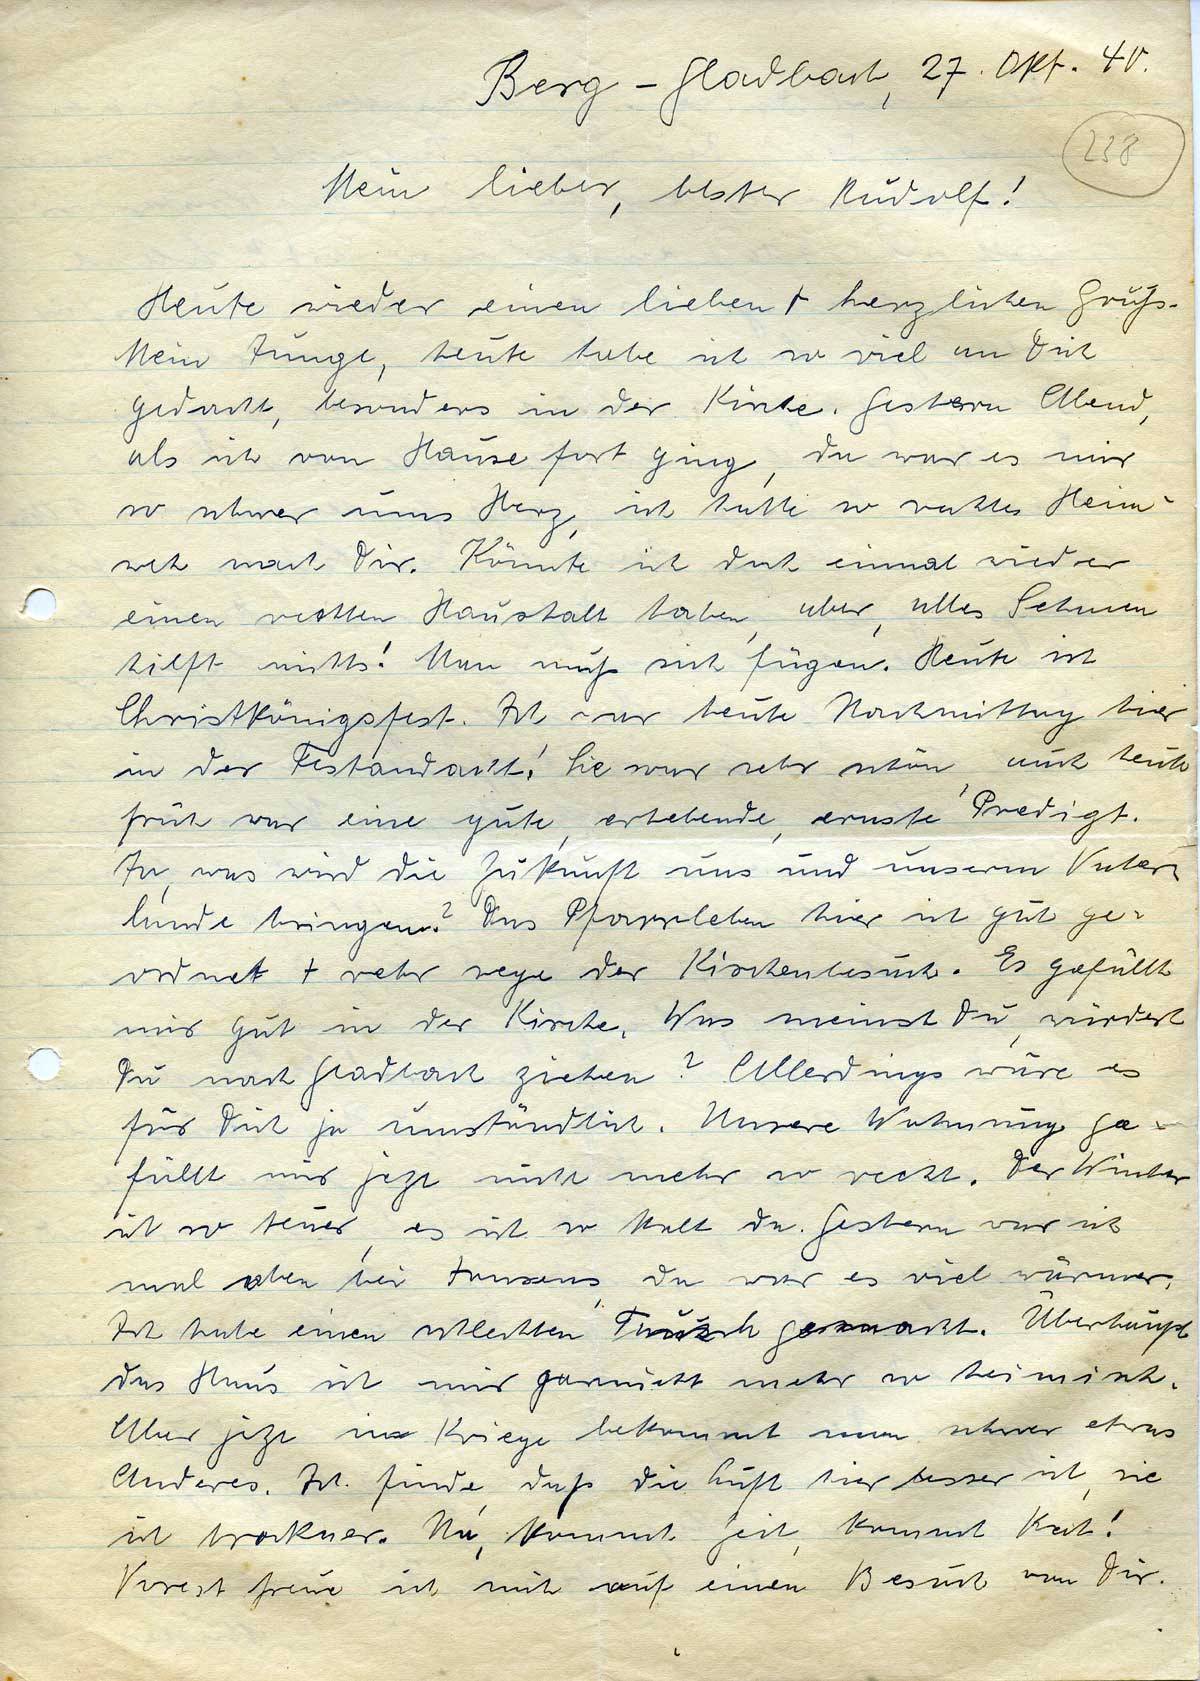 Berg-Gladbach, 27. Okt. 40.
238
Mein lieber, bester Rudolf!
Heute wieder einen lieben + herzlichen Gruß.
Mein Junge, heute habe ich so viel an Dich
gedacht, besonders in der Kirche. Gestern Abend,
als ich von Hause fort ging, da war es mir
so schwer ums Herz, ich hatte so rechtes Heim-
weh nach Dir. Könnte ich doch einmal wieder
einen rechten Haushalt haben, aber, alles Sehnen
hilft nichts! Man muß sich fügen. Heute ist
Christkönigsfest. Ich war heute Nachmittag hier
in der Festandacht! Sie war sehr schön, auch heute
früh war eine gute, erhebende, ernste Predigt.
Ja, was wird die Zukunft uns und unserm Vater-
lande bringen? Das Pfarrleben hier ist gut ge-
ordnet + sehr rege der Kirchenbesuch. Es gefällt
mir gut in der Kirche. Was meinst Du, würdest
Du nach Gladbach ziehen? Allerdings wäre es
für Dich ja umständlich. Unsere Wohnung ge-
fällt mir jezt nicht mehr so recht. Der Winter
ist so teuer, es ist so kalt da. Gestern war ich
mal oben bei Jansens, da war es viel wärmer.
Ich habe einen schlechten Tausch gemacht. Überhaupt
das Haus ist mir garnicht mehr so heimisch.
Aber jezt im Kriege bekommt man schwer etwas
Anderes. Ich finde, daß die Luft hier besser ist, sie
ist trockner. Na, kommt Zeit, kommt Rat!
Vorest freue ich mich auf einen Besuch von Dir.